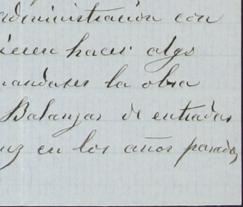 administración con
ieren hacer algo
mandases la obra
Balanzas de entradas
uz en los años pasados